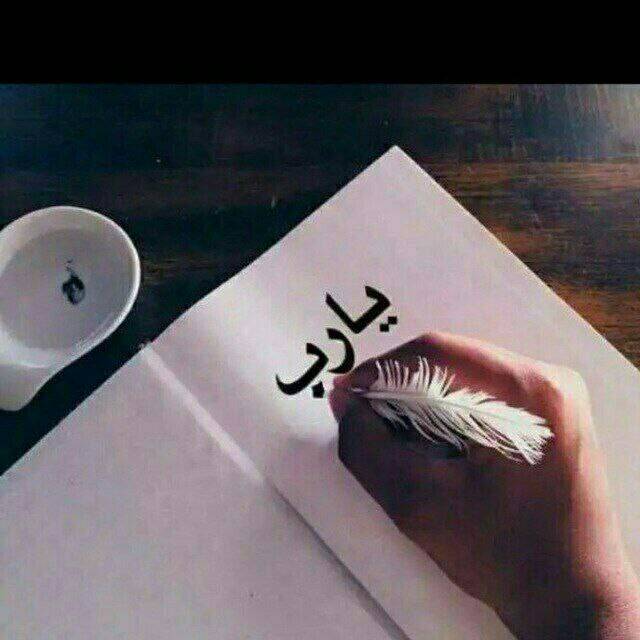 يارب